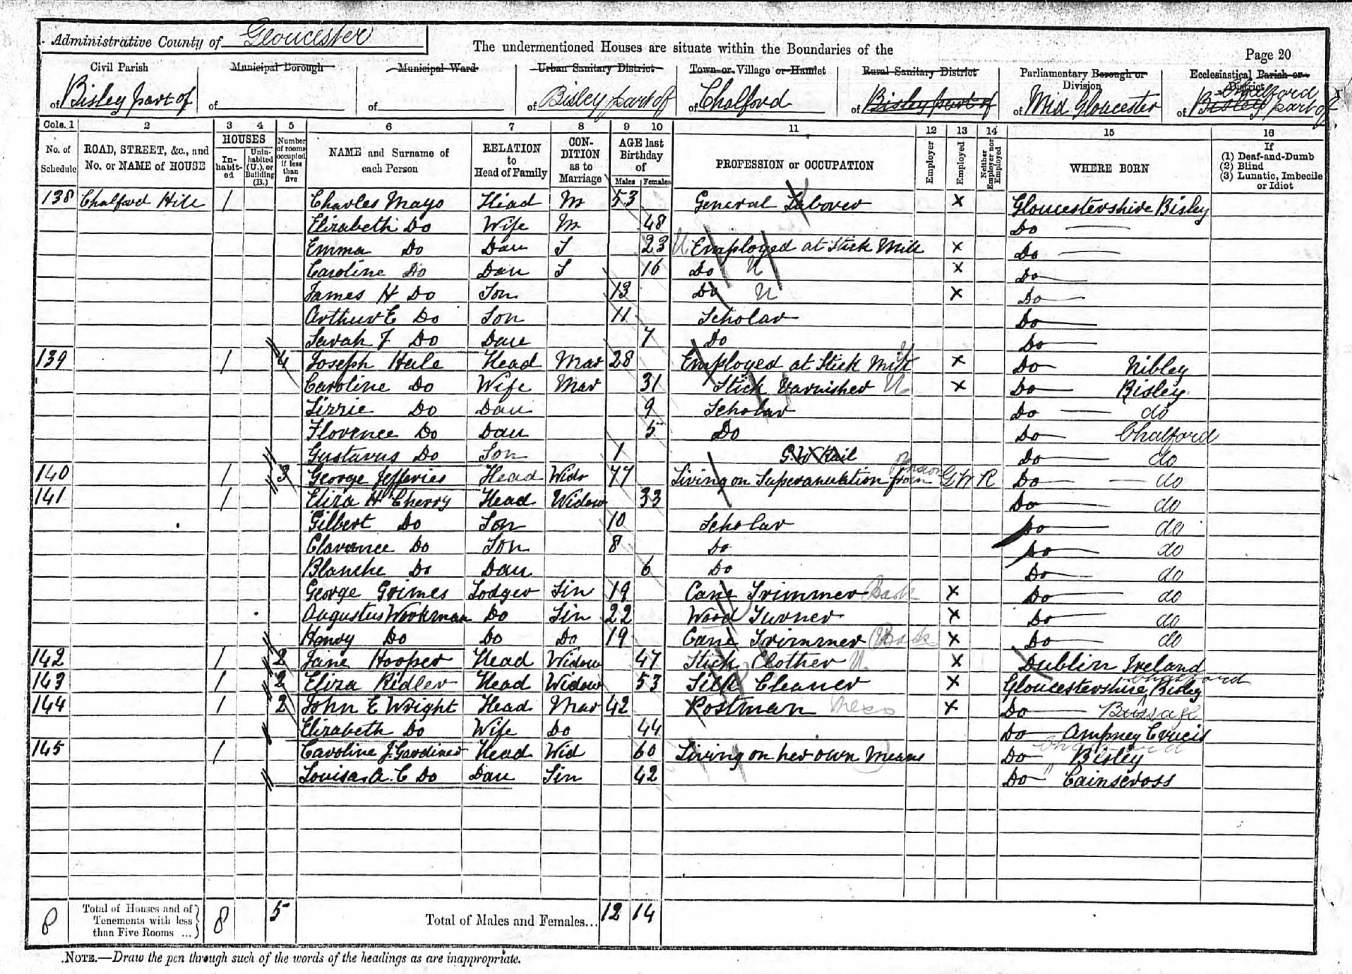 Administrative County of Gloucester
The undermentioned Houses are situate within the Boundaries of the
Page 20
Civil Parish Municipal Borough Municipal Ward Urban Sanitary District Town or Village or Hamlet Rural Sanitary District Parliamentary Borough or Division Ecclesiastical Parish or District
of Bisley part of of of of Bisley part of of Chalford of Bisley part of of Mid Gloucester of Chalford Bisley part of
Cols. 1 2 3 4 5 6 7 8 9 10 11 12 13 14 15 16
No. of Schedule ROAD, STREET, &c., and No. or NAME of HOUSE HOUSES Inhabited Uninhabited (U.), or Building (B.) Number of rooms occupied if less than five NAME and Surname of each Person RELATION to Head of Family CONDITION as to Marriage AGE last Birthday of Males Females PROFESSION or OCCUPATION Employer Employed Neither Employer nor Employed WHERE BORN If (1) Deaf-and-Dumb (2) Blind (3) Lunatic, Imbecile or Idiot
138 Chalford Hill 1 Charles Mayo Head M 53 General Laborer x Gloucestershire Bisley
Elizabeth Do Wife M 48 Do
Emma Do Dau S 23 Employed at Stick Mill x Do
Caroline Do Dau S 16 Do x Do
James H Do Son 13 Do x Do
Arthur E Do Son 11 Scholar Do
Sarah J Do Dau 7 Do Do
139 1 4 Joseph Hale Head Mar 28 Employed at Stick Mill x Do Nibley
Caroline Do Wife Mar 31 Stick Varnisher x Do Bisley
Lizzie Do Dau 9 Scholar Do do
Florence Do Dau 5 Do Do Chalford
Gustavus Do Son 1 Do do
140 1 3 George Jefferies Head Widr 77 Living on Superanuation pension from G W R Do do
141 1 Eliza H Cherry Head Widow 33 Do do
Gilbert Do Son 10 Scholar Do do
Clarance Do Son 8 Do Do do
Blanche Do Dau 6 Do Do do
George Grimes Lodger Sin 19 Cane Trimmer x Do do
Augustus Workman Do Sin 22 Wood Turner x Do do
Henry Do Do Do 19 Cane Trimmer x Do do
142 1 2 Jane Hooper Head Widow 47 Stick Clother x Dublin Ireland
143 1 2 Eliza Ridler Head Widow 53 Silk Cleaner x Gloucestershire Bisley Chalford
144 1 2 John E Wright Head Mar 42 Postman Mess x Do Bussage
Elizabeth Do Wife Do 44 Do Ampney Crucis
145 1 Caroline J Gardiner Head Wid 60 Living on her own Means Do Bisley
Louisa A. C Do Dau Sin 42 Do Cainscross
8 Total of Houses and of Tenements with less than Five Rooms ... 8 5 Total of Males and Females... 12 14
NOTE.—Draw the pen through such of the words of the headings as are inappropriate.